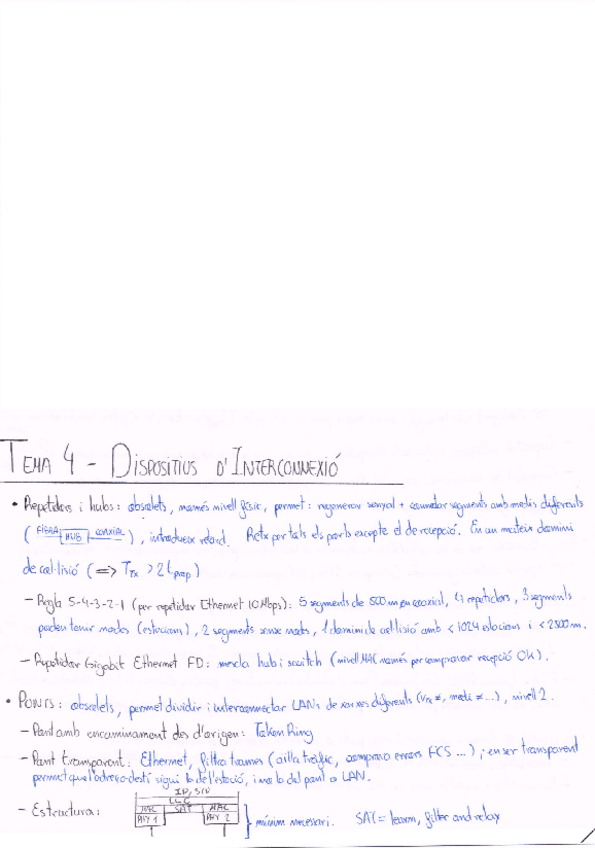 TEMA 4 - DISPOSITIUS D'INTERCONNEXIÓ
• Repetidors i hubs: obsolets, només nivell físic, permet: regenerar senyal + connectar segments amb medis diferents
( FIBRA HUB COAXIAL ), introdueix retard. Retx per tots els ports excepte el de recepció. En un mateix domini
de col·lisió (=> Ttx > 2tprop)
- Regla 5-4-3-2-1 (per repetidor Ethernet 10Mbps): 5 segments de 500m en coaxial, 4 repetidors, 3 segments
poden tenir nodes (estacions), 2 segments sense nodes, 1 domini de col·lisió amb < 1024 estacions i < 2500m.
- Repetidor Gigabit Ethernet FD: mescla hub i switch (nivell MAC només per comprovar recepció OK).
• PONTS: obsolets, permet dividir i interconnectar LANs de xarxes diferents (Vtx ≠, medi ≠...), nivell 2.
- Pont amb encaminament des d'origen: Token Ring
- Pont transparent: Ethernet, filtra trames (aïlla tràfic, comprova errors FCS ...); en ser transparent
permet que l'adreça destí sigui la de l'estació, i no la del pont o LAN.
- Estructura:
LLC
MAC SAT MAC
PHY 1 PHY 2
mínim necessari. SAT = learn, filter and relay